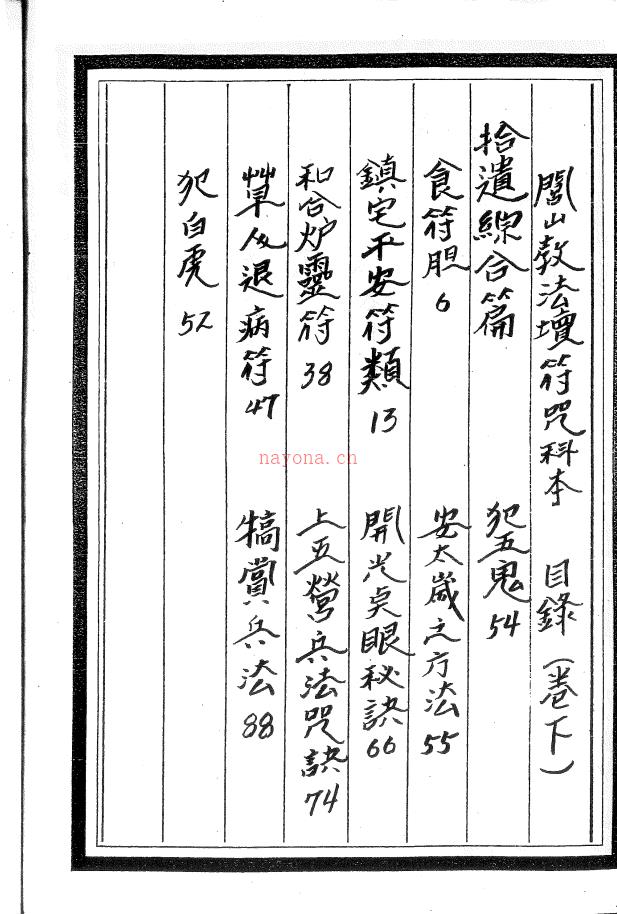 閭山教法壇符咒科本 目錄(卷下)
拾遺綜合篇
犯五鬼 54
食符胆 6
安太歲之方法 55
鎮宅平安符類 13
開光点眼秘訣 66
和合炉靈符 38
上五營兵法咒訣 74
草人退病符 47
犒賞兵法 88
犯白虎 52
nayona.cn